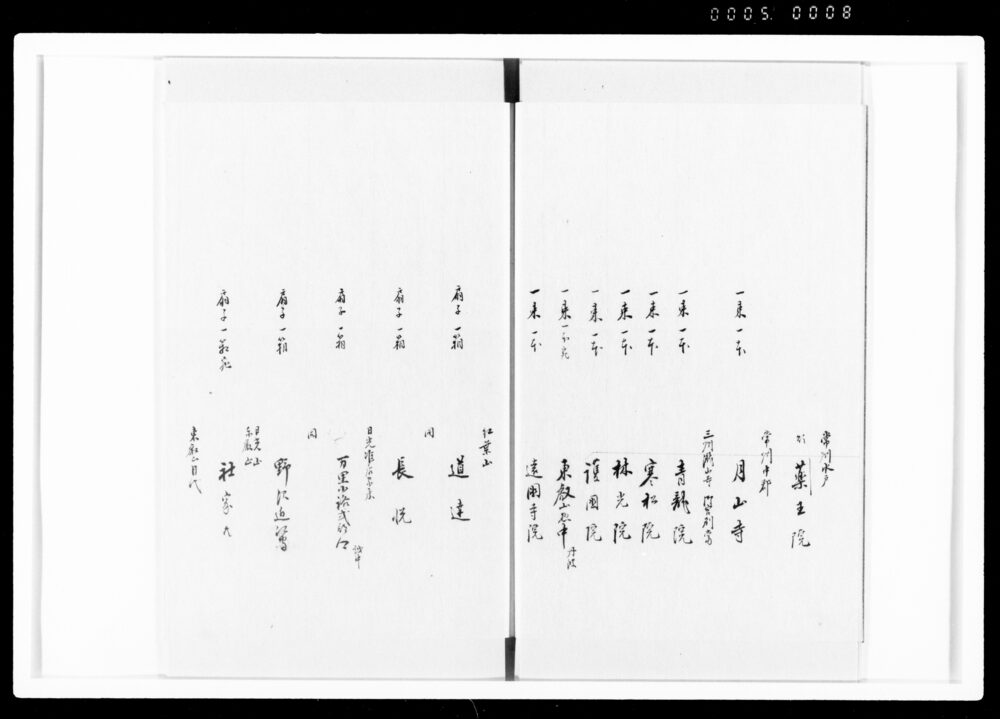 0005. 0008
常州水戸
薬王院
常州中郡
一束一本
月山寺
三州瀧山寺
一束一本
青龍院
一束一本
寒松院
一束一本
林光院
一束一本
護国院
一束一本宛
東叡山 中
一束一本
遠国寺院
紅葉山
扇子一箱
道達
同
扇子一箱
長悦
日光准后
扇子一箱
万里小路
同
扇子一箱
野沢
日光山
東叡山
扇子一箱宛
社家
東叡山目代